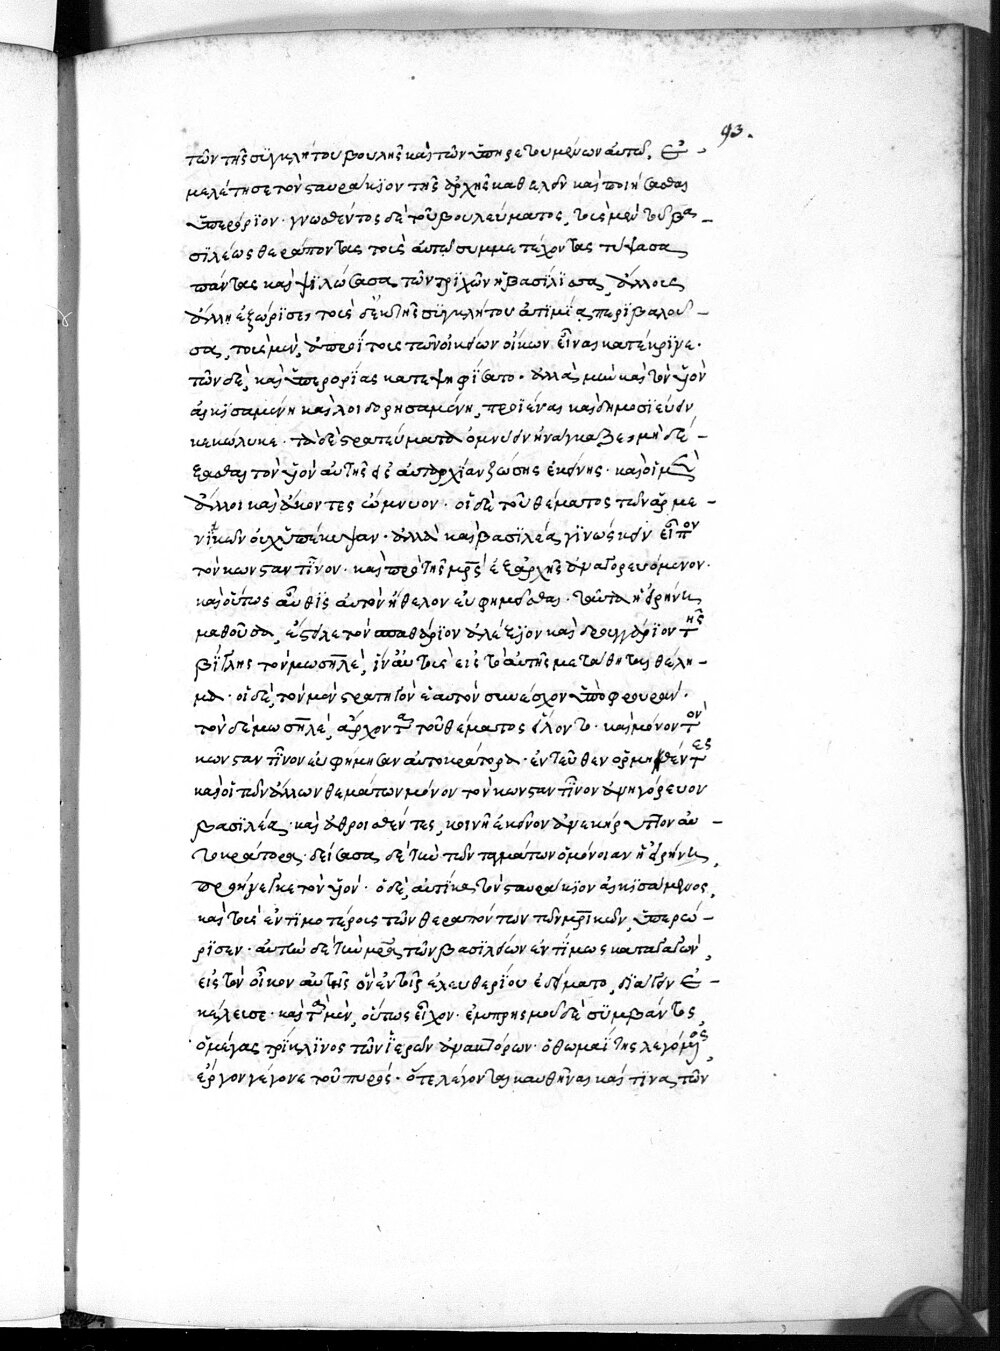 93.
τῶν τῆς συγκλήτου βουλῆς καὶ τῶν ὑπηρετουμένων αὐτῶ, ἐ-
μελέτησε τὸν σταυράκιον τῆς ἀρχῆς καθελεῖν καὶ ποιήσασθαι
ὑπερόριον· γνωσθέντος δὲ τοῦ βουλεύματος, τοὺς μὲν τοῦ βα-
σιλέως θεράποντας τοὺς αὐτῶ συμμετέχοντας τύψασα
πάντας καὶ ψιλώσασα τῶν τριχῶν ἡ βασίλισσα, ἄλλους
ἄλλη ἐξώρισε, τοὺς δ' ἐκ τῆς συγκλήτου ἀτιμίᾳ περιβαλοῦ-
σα, τοὺς μὲν, ἀπροΐτους τῶν οἰκείων οἴκων εἶναι κατέκρινε·
τῶν δὲ, καὶ ὑπερορίας κατεψηφίσατο· ἀλλὰ μὴν καὶ τὸν υἱὸν
αἰκισαμένη καὶ λοιδορησαμένη, προϊέναι καὶ δημοσιεύειν
κεκώλυκε· τὰ δὲ στρατεύματα ὀμνύειν ἠνάγκαζε, μὴ δέ-
ξασθαι τὸν υἱὸν αὐτῆς εἰς αὐταρχίαν ζώσης ἐκείνης· καὶ οἱ μὲν
ἄλλοι καὶ ἄκοντες ὤμνυον· οἱ δὲ τοῦ θέματος τῶν ἀρμε-
νιακῶν οὐχ ὑπέκυψαν· ἀλλὰ καὶ βασιλέα γινώσκειν εἶπον
τὸν κωνσταντῖνον· καὶ πρὸ τῆς μητρὸς ἐξ ἀρχῆς ἀναγορευόμενον·
καὶ οὕτως αὖθις αὐτὸν ἤθελον εὐφημεῖσθαι· ταῦτα ἡ εἰρήνη
μαθοῦσα, ἔστειλε τὸν σπαθάριον ἀλέξιον καὶ δρουγγάριον τῆς
βίγλης τὸν μωσηλὲ, ἵν' αὐτοὺς εἰς τὸ αὐτῆς μεταθῆται θέλη-
μα· οἱ δὲ, τὸν μὲν στρατηγὸν ἑαυτῶν συνέσχον ὑπὸ φρουράν·
τὸν δὲ μωσηλὲ, ἄρχοντα τοῦ θέματος εἵλοντο· καὶ μόνον τὸν
κωνσταντῖνον εὐφήμησαν αὐτοκράτορα· ἐντεῦθεν ὁρμηθέντες
καὶ οἱ τῶν ἄλλων θεμάτων μόνον τὸν κωνσταντῖνον ἀνηγόρευον
βασιλέα· καὶ ἀθροισθέντες, κοινῆ ἐκεῖνον ἀνεκήρυττον αὐ-
τοκράτορα· δείσασα δὲ τὴν τῶν ταγμάτων ὁμόνοιαν ἡ εἰρήνη,
προήγαγε τὸν υἱὸν· ὁ δὲ, αὐτίκα τὸν σταυράκιον αἰκισάμενος,
καὶ τοὺς ἐντιμοτέρους τῶν θεραπόντων τῶν μητρικῶν, ὑπερώ-
ρισεν· αὐτὴν δὲ τὴν μητέρα τῶν βασιλείων ἐντίμως καταγαγὼν,
εἰς τὸν οἶκον αὐτῆς ὃν ἐν τοῖς ἐλευθερίου ἐδείματο, διάγειν ἐ-
κέλευσε· καὶ ταῦτα μὲν, οὕτως εἶχον· ἐμπρησμοῦ δὲ συμβάντος,
ὁ μέγας τρίκλινος τῶν ἱερῶν ἀνακτόρων· ὁ θωμαΐτης λεγόμενος,
ἔργον γέγονε τοῦ πυρός· ὅτε λέγονται καυθῆναι καί τινα τῶν